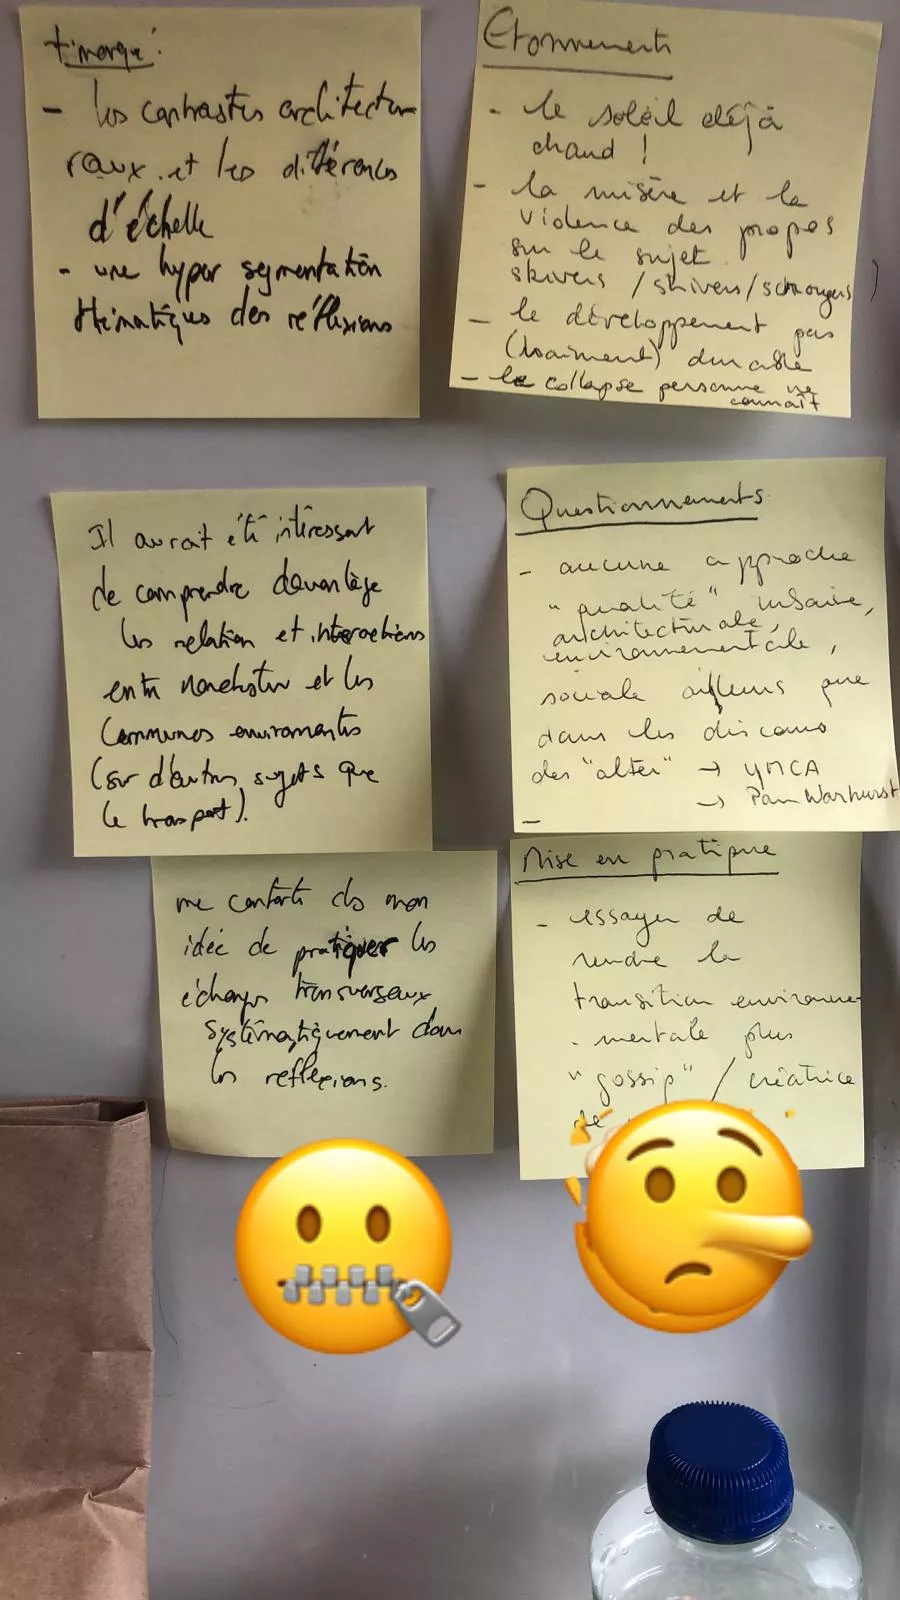 t'marqué :
- les contrastes architectu
raux et les différences
d'échelle
- une hyper segmentation
thématiques des réflexions
Etonnements
- le soleil déjà
chaud !
- la misère et la
violence des propos
sur le sujet
skivers / strivers / scroungers
- le développement pas
(vraiment) durable
- le collapse personne ne
connaît
Il aurait été intéressant
de comprendre davantage
les relation et interactions
entre Manchester et les
Communes environnantes
(sur d'autres sujets que
le transport).
Questionnements
- aucune approche
"qualité" urbaine,
architecturale,
environnementale,
sociale ailleurs que
dans les discours
des "alter" → YMCA
→ Pam Warhurst
-
me conforte ds mon
idée de pratiquer les
échanges transversaux
systématiquement dans
les reflexions.
Mise en pratique
- essayer de
rendre la
transition environne-
-mentale plus
"gossip" / créatrice
de